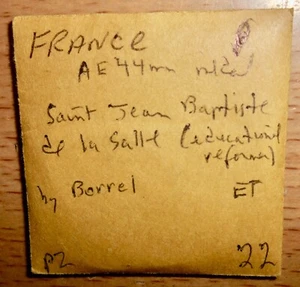 FRANCE
AE 44mm medal
Saint Jean Baptiste
de la Salle (educational
reformer)
by Borrel ET
22